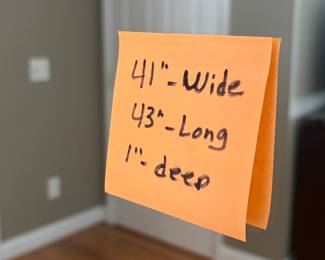 41"-Wide
43"-Long
1"-deep